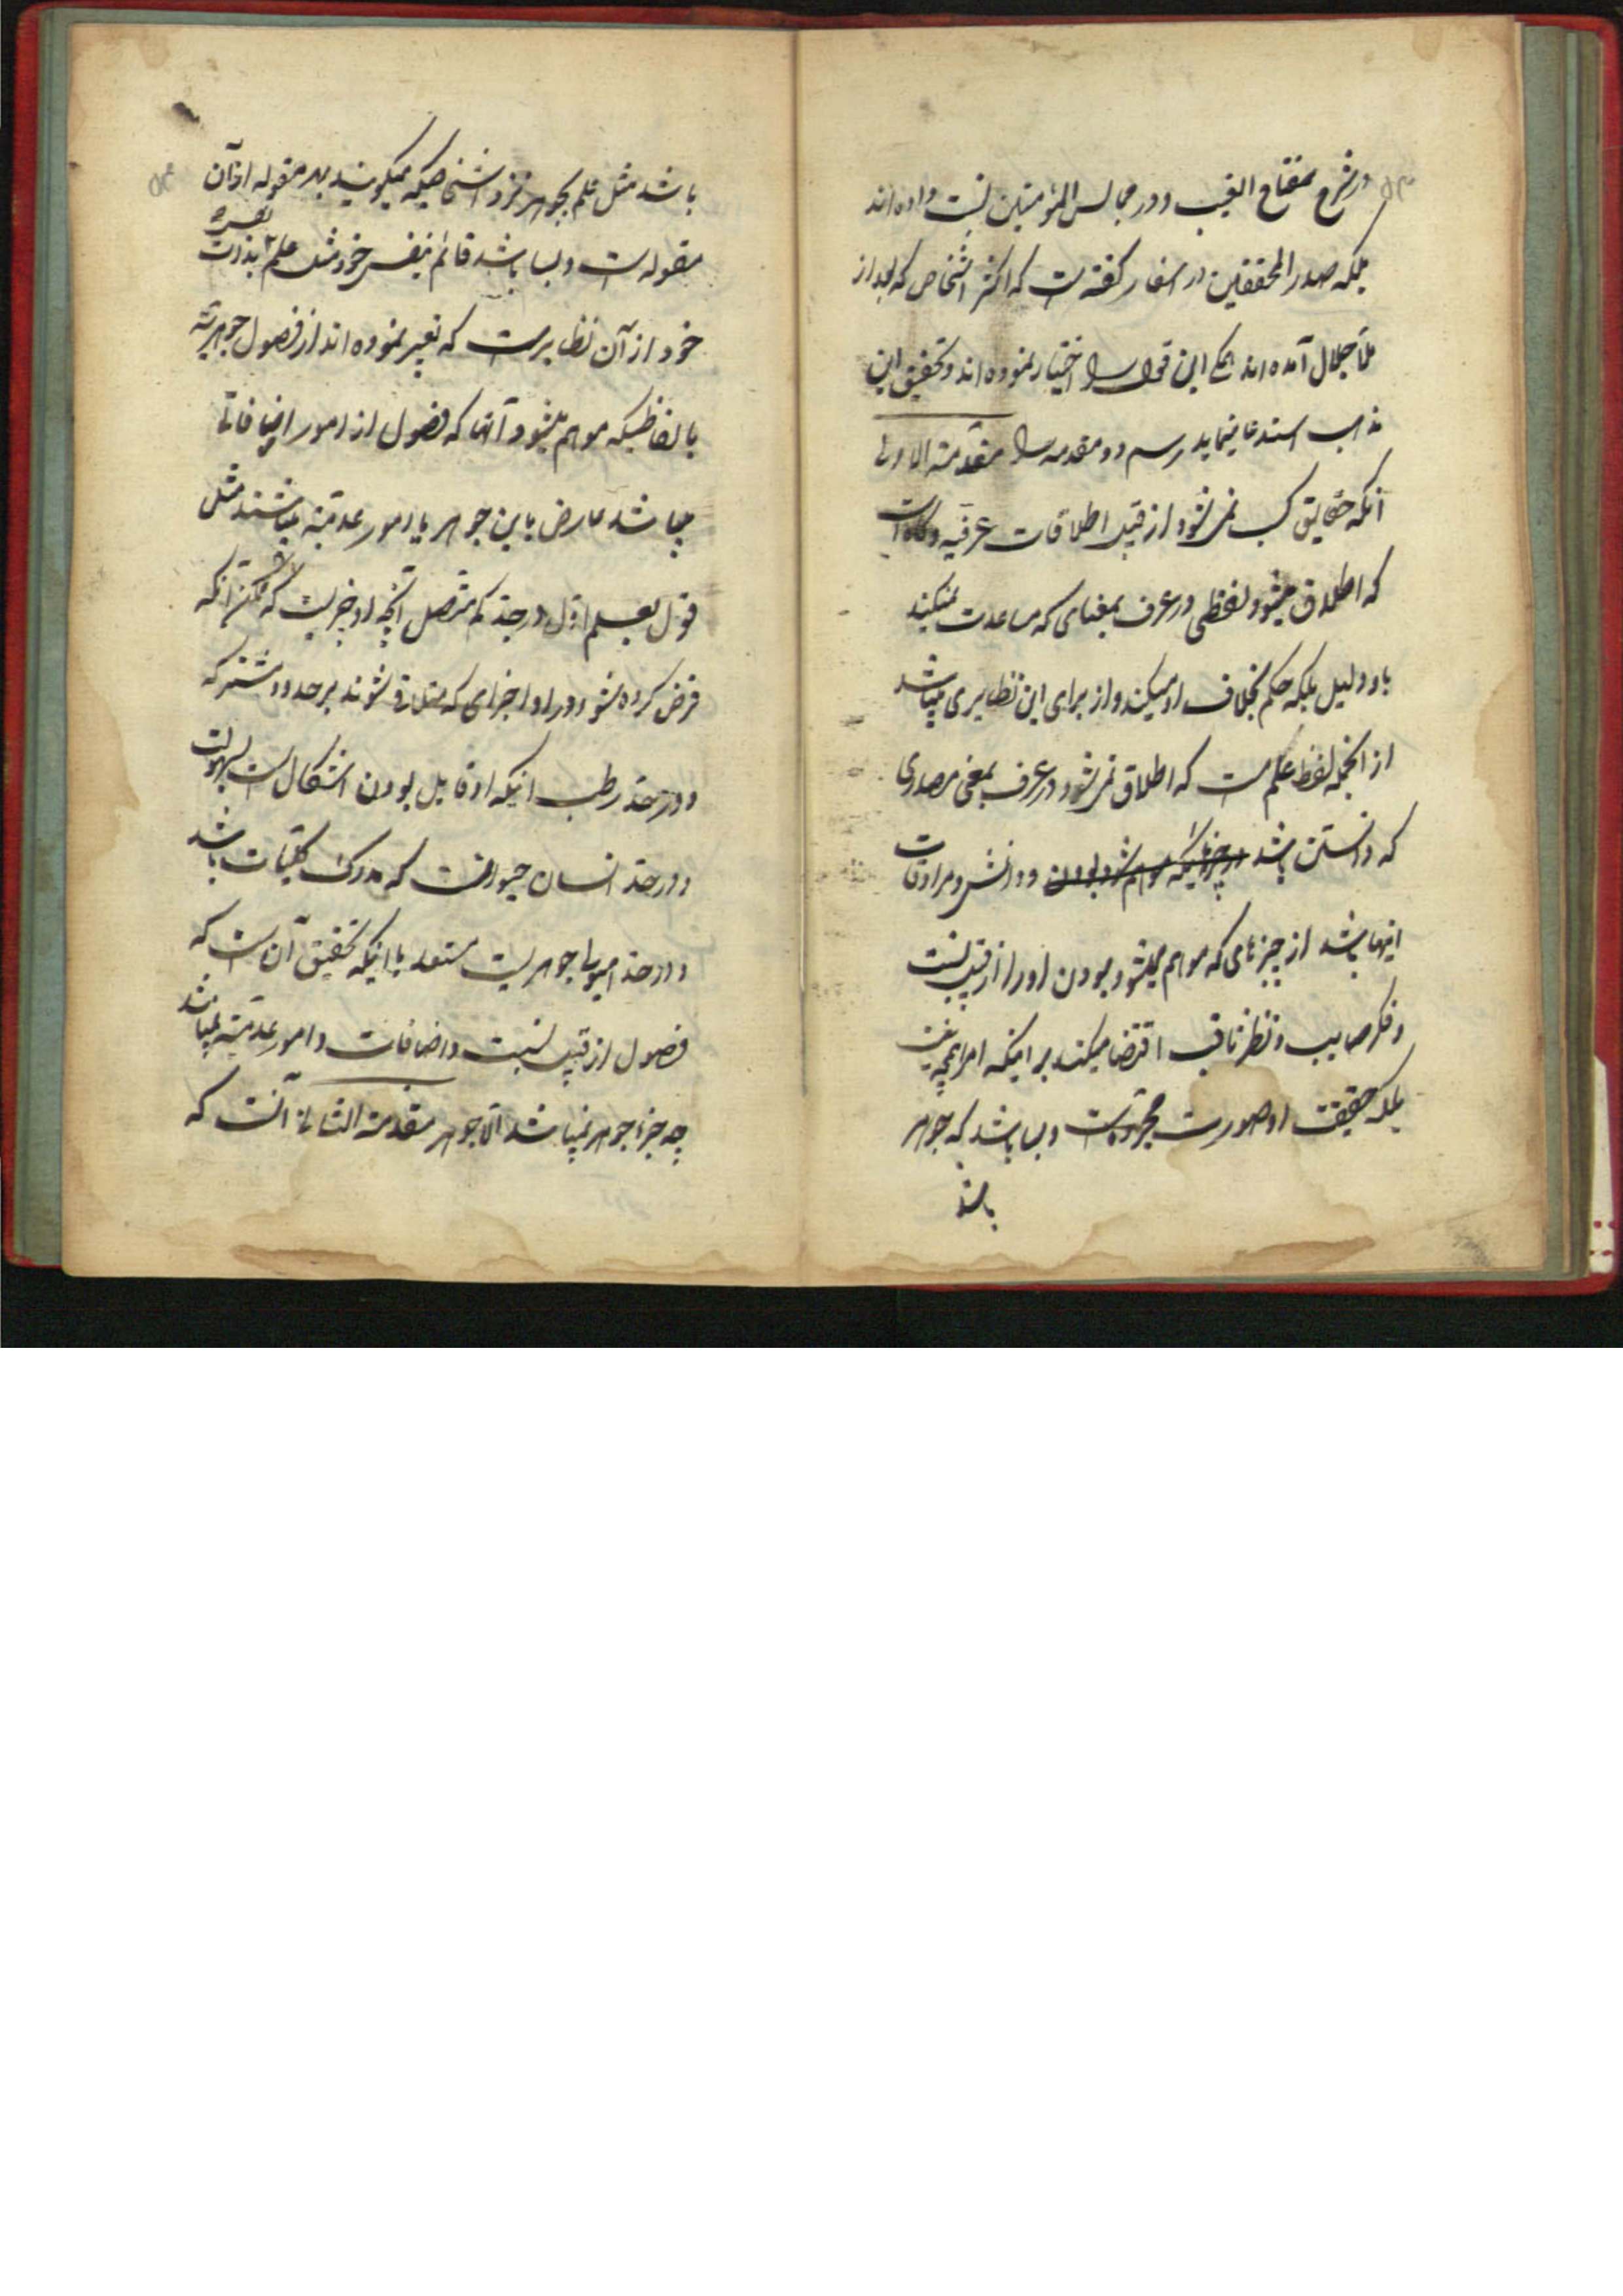 در شرح مفتاح الغیب و در مجالس المؤمنین نسبت داده اند
بلکه صدر المحققین در اسفار گفته است که اکثر اشخاص که بعد از
ملا جلال آمده اند همگی این قول را اختیار نموده اند و تحقیق این
مذهب استدعا مینماید رسم دو مقدمه را مقدمة الاولی
آنکه حقایق کسب نمی شود از قبیل اطلاقات عرفیه و گاه است
که اطلاق میشود لفظی در عرف بمعنای که مساعدت نمیکند
باو دلیل بلکه حکم بخلاف او میکند و از برای این نظایری میباشد
از آنجمله لفظ علم است که اطلاق نمی شود در عرف بمعنی مصدری
که دانستن باشد و دانش و مرادفات
اینها باشد از چیزهای که موهم میشود بودن او را از قبیل نسبت
و فکر صایب و نظر ثاقب اقتضا میکند بر اینکه امر
بلکه حقیقت او صورت مجرده است و بسا باشد که جوهر
باشد
باشد مثل علم بجوهر نزد اشخاصیکه میگویند بهر مقوله از آن
مقوله است و بسا باشد قائم بنفس خود مثل علم بذات
خود از آن نظایر است که تعبیر نموده اند از فصول جوهریه
بالفاظیکه موهم میشود آنها که فصول از امور اضافاتی
میباشد عارض باین جوهر یا امور عدمیة میباشند مثل
قول معلم اول در حد کم متصل آنچه او چیزیست که ممکن آنکه
فرض کرده شود در او اجزای که متلاقی شوند بر حدود مشترکه
و در حد رطب اینکه او قابل بودن اشکال است بسهولت
و در حد انسان حیوانست که مدرک کلیات باشد
و در حد هیولا جوهریست مستعد با اینکه تحقیق آن است که
فصول از قبیل نسبت و اضافات و امور عدمیة نمیباشد
چه جزء جوهر نمیباشد الا جوهر مقدمة الثانی آنست که